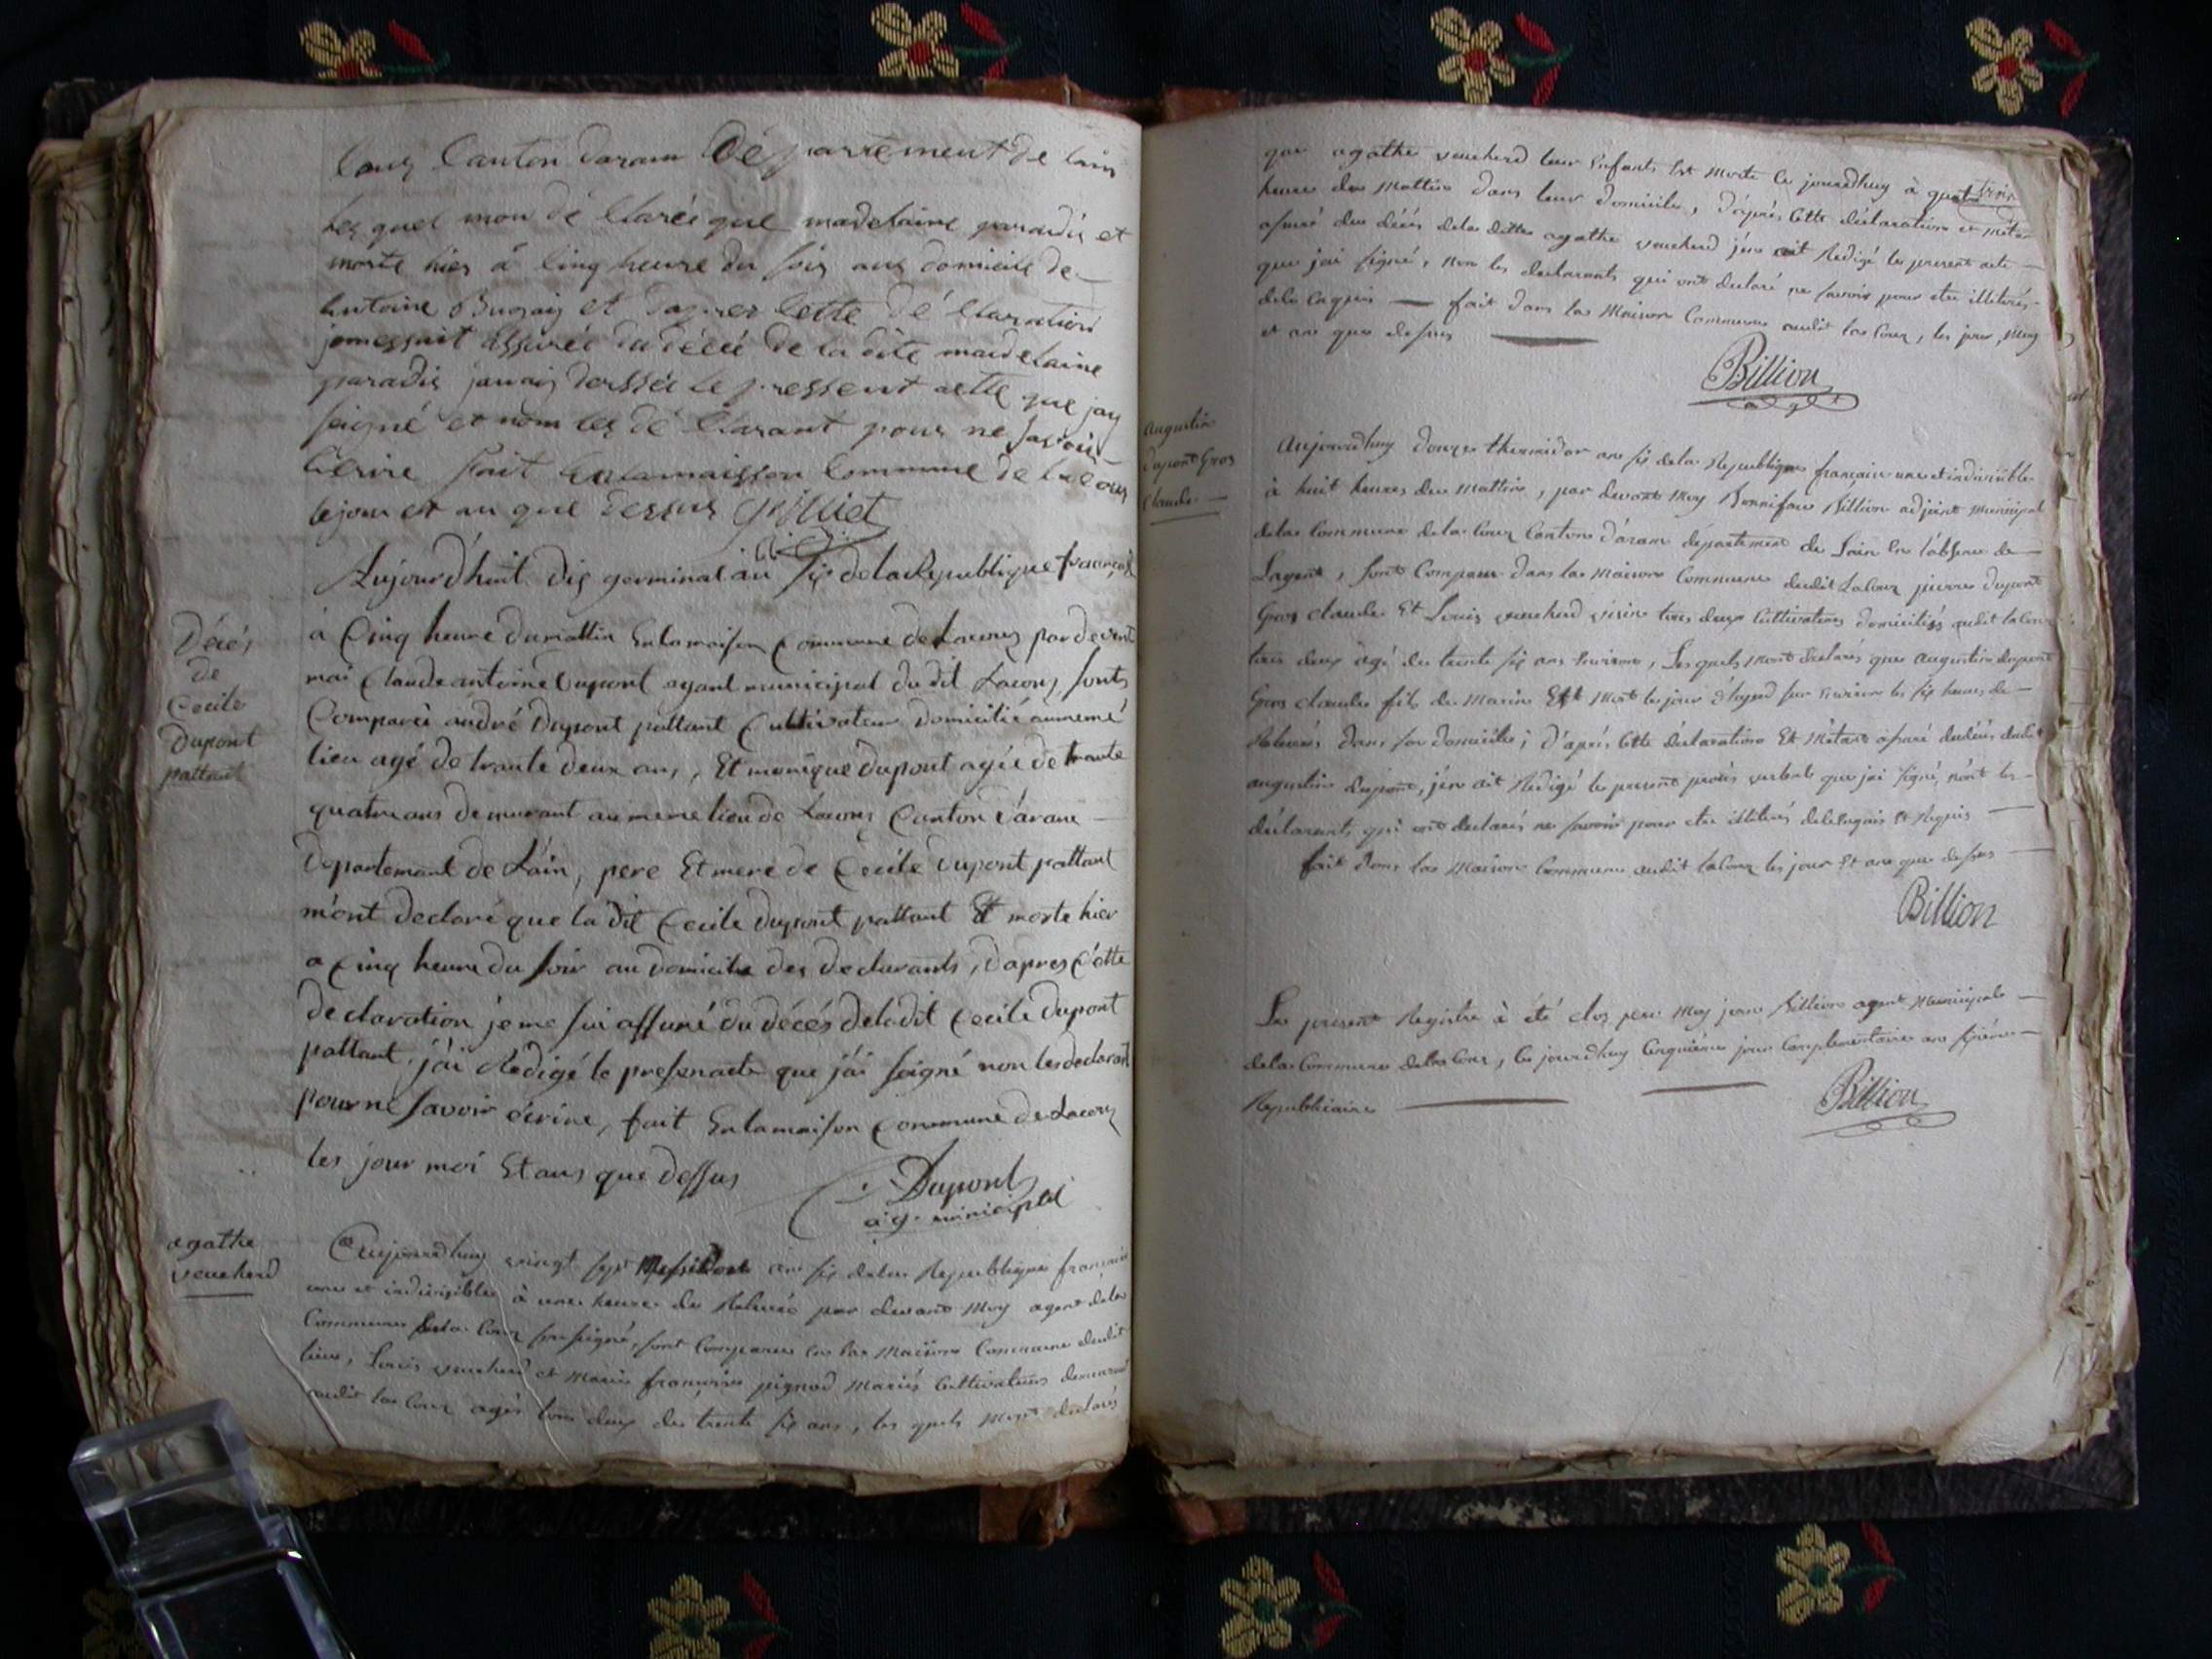 Couz Canton daram Département de lain
lesquel mon dé Claréé que madelaine paradis et
morte hier à Cinq heure du soir aux domicile de
antoine Bugnay et dapres cette dé Claration
jemessuit assurée du décéé de la dite madelaine
paradis javais derssée le pressent actte que jay
seigné et nom les dé Clarant pour ne savoir
Cérire fait en lamaisson Commune de la Cour
lejour et an que dessus
Décés
de
Cecile
Dupont
pattant
Aujourd'huit dix germinal an Six de la Republique français
à Cinq heure du mattin En lamaison Commune de Lacouz par devent
moi Claude antoine Dupont agant municipal du dit Lacouz, sonts
Comparêt andré Dupont pattant Cultivateur Domicilié aumemé
lieu agé de trante deux ans, Et monique dupont agée de trante
quatre ans demeurant au meme lieu de Lacouz Canton d'arane
Departemant de L'ain, pere Et mere de Cecile Dupont pattant
m'ont declaré que la dit Cecile dupont pattant Et morte hier
a Cinq heure du soir au Domicile des declarants, D'apres Cétte
declaration je me sui assuré du décés de ladit Cecile dupont
pattant, j'ai Redigé le presenacte que j'ai soigné non lesdeclarant
pour ne savoir écrire, fait En lamaison Commune de Lacouz
les jour moi Et ans que dessus
Dupont
ag. municipal
agathe
veucherd
Aujourdhuy vingt sept Messidore an six dela Republique française
une et indivisible à une heure de Relevée par devant Moy agent dela
Commune dela Couz soussigné, sont Comparus en la Maison Commune dudit
lieu, Louis veucherd et Marie françoise pignod Mariés Cultivateurs demeurant
audit la Couz agés tous deux de trente six ans, les quels Mont declarés
que agathe veucherd leur Enfants Est Morte Ce jourdhuy à quatre
heures du Mattin dans leur domicile, d'aprés Cette déclaration et m'étan
assuré du décés dela ditte agathe veucherd j'en ait Redigé le present acte
que jai signé, non les declarants qui ont declaré ne savoir pour etre illiterés
dela Cequis fait dans la Maison Commune audit la Couz, les jour, Moy
et an que dessus
Billion
ag
augustin
dupont Gros
Claude
Aujourdhuy Douzes thermidor an six dela Republique française une et indivisible
à huit heures du Mattin, par devant Moy Bonniface Billion adjoint Municipal
dela Commune dela Couz Canton d'aram département de Lain En l'absence de
Lagent, sont Comparus dans la Maison Commune dudit LaCouz pierre dupont
Gros claude Et Louis veucherd voisin tous deux Cultivateurs domiciliés audit la Couz
tous deux agé de trente six ans Environs, Les quels Mont declarés que augustin dupont
Gros claude fils de Marin Est Mort le jour d'hyerd sur Environ les six heures de
Relevées dans son domicile; d'aprés Cette déclaration Et M'étant assuré dudécés dudit
augustin dupont, j'en ait Redigé le present procés verbal que jai signé, nont les
déclarants qui ont declarés ne savoir pour etre illiterés
fait dans la Maison Commune audit laCouz les jour Et an que dessus
Billion
Le present Registre à été clos par Moy Billion agent Municipale
dela Commune dela Couz, Ce jourdhuy Cinquiéme jour Complementaire an sixiéme
Republicaine
Billion